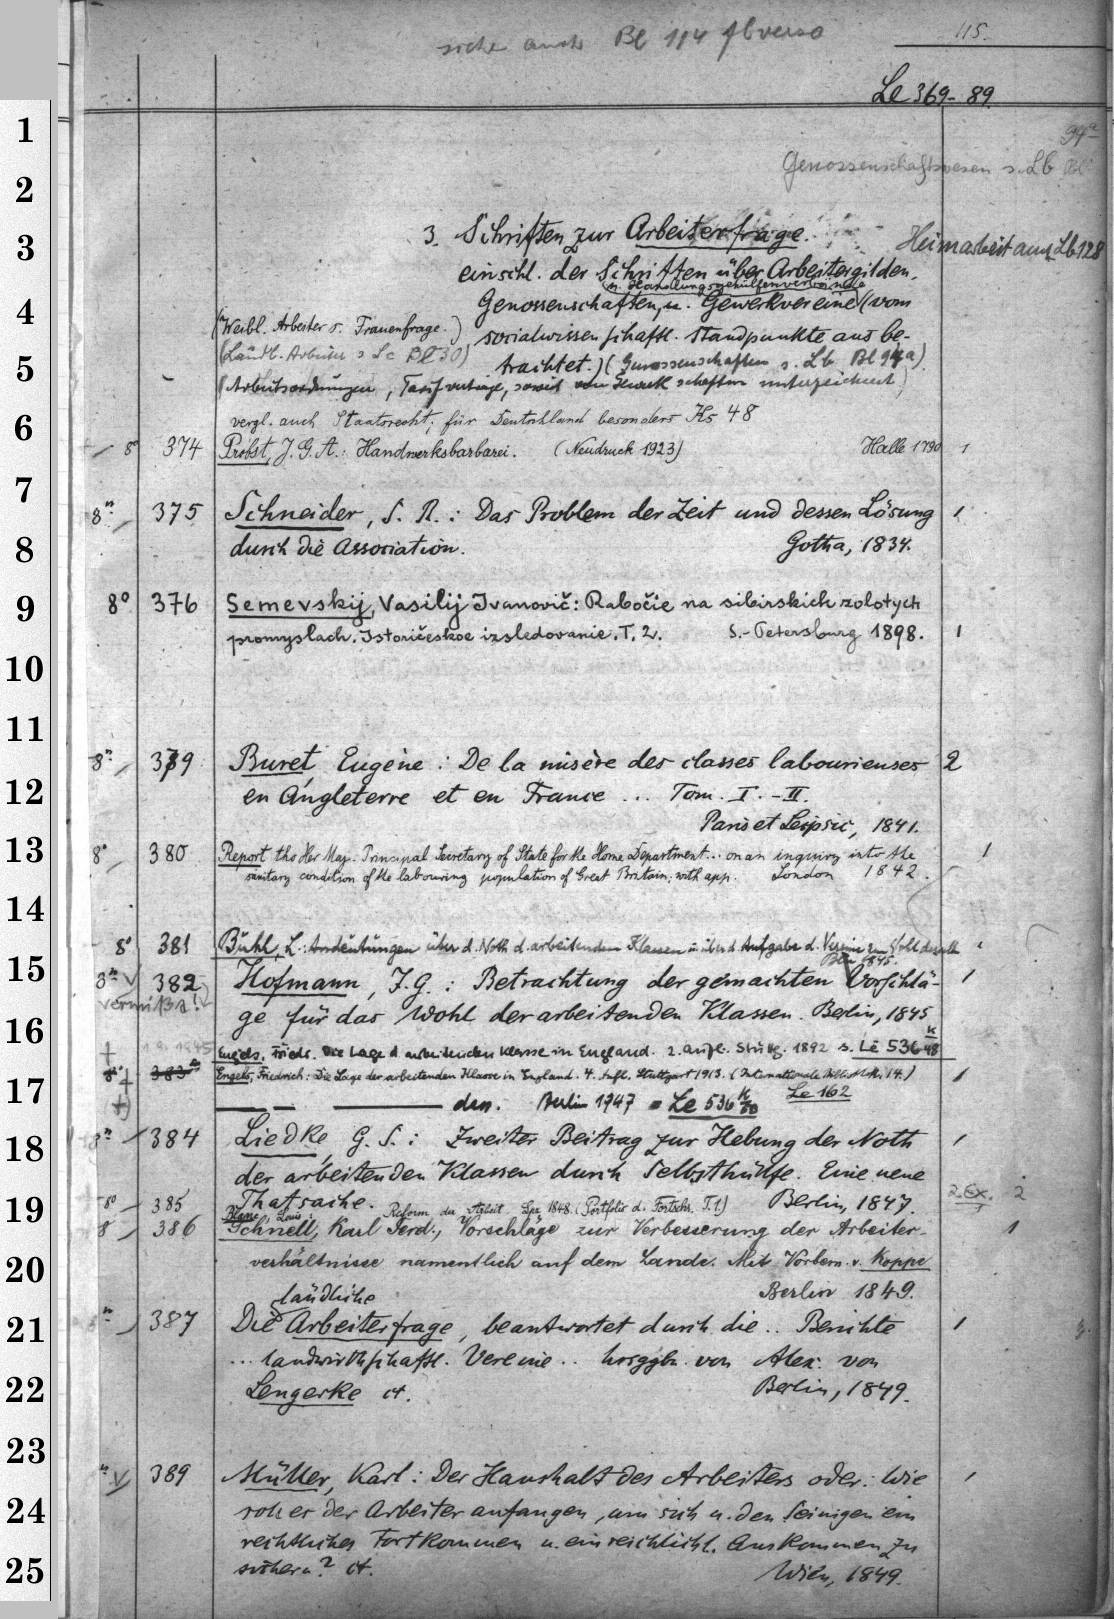 siehe auch Bl 114 f verso
115.
Le 369-89.
94a
Genossenschaftswesen s. Lb Bl
3. Schriften zur Arbeiterfrage.
Heimarbeit auch Lb 128
einschl. der Schriften über Arbeitergilden,
u. Handlungsgehülfenverbände
Genossenschaften, u. Gewerkvereine (vom
(Weibl. Arbeiter s. Frauenfrage.)
sozialwissenschaftl. Standpunkte aus be-
(Ländl. Arbeiter s Lc Bl 30)
trachtet.) (Genossenschaften s. Lb Bl 94a).
(Arbeitsordnungen, Tarifverträge, soweit von Gewerkschaften unterzeichnet)
vergl. auch Staatsrecht, für Deutschland besonders Hs 48
8° 374 Probst, J. G. A.: Handwerksbarbarei. (Neudruck 1923) Halle 1790 1
8° 375 Schneider, S. R.: Das Problem der Zeit und dessen Lösung 1
durch die Association. Gotha, 1834.
8° 376 Semevskij, Vasilij Ivanovič: Rabočie na sibirskich zolotych
promyslach. Istoričeskoe izsledovanie. T. 2. S.-Petersburg 1898. 1
8° 379 Buret, Eugène: De la misère des classes labourieuses 2
en Angleterre et en France ... Tom. I.-II.
Paris et Leipsic, 1841.
8° 380 Report tho Her Maj. Principal Secretary of State for the Home Department... on an inquiry into the 1
sanitary condition of the labouring population of Great Britain; with app. London 1842.
8° 381 Bühl, L.: Andeutungen über d. Noth d. arbeitenden Klassen u. über d. Aufgabe d. Vereine zu Wohl derselb 1
Bln 1845.
8° 382 Hofmann, J. G.: Betrachtung der gemachten Vorschlä- 1
ge für das Wohl der arbeitenden Klassen. Berlin, 1845
Engels, Friedr. Die Lage d. arbeitenden Klasse in England. 2. Aufl. Stuttg. 1892 s. Le 536 K/48
8° 383 Engels, Friedrich: Die Lage der arbeitenden Klasse in England. 4. Aufl. Stuttgart 1913. (Internationale Bibliothek. 14.) 1
Le 162
dass. Berlin 1947 = Le 536 K/50
8° 384 Liedke, G. S.: Zweiter Beitrag zur Hebung der Noth 1
der arbeitenden Klassen durch Selbsthülfe. Eine neue
Thatsache. Berlin, 1847. 2 Ex. 2
8° 385 Blanc, Louis: Reform der Arbeit. Lpz 1848. (Portfolio d. Fortschr. T. 1)
8° 386 Schnell, Karl Ferd., Vorschläge zur Verbesserung der Arbeiter- 1
verhältnisse namentlich auf dem Lande. Mit Vorbem. v. Koppe
Berlin 1849.
ländliche
387 Die Arbeiterfrage, beantwortet durch die .. Berichte 1
... landwirthschaftl. Vereine .. hrsggbn von Alex. von
Lengerke ct. Berlin, 1849.
389 Müller, Karl: Der Haushalt des Arbeiters oder: Wie 1
soll er der Arbeiter anfangen, um sich u. den Seinigen ein
rechtliches Fortkommen u. ein reichlichl. Auskommen zu
sichern? ct. Wien, 1849.